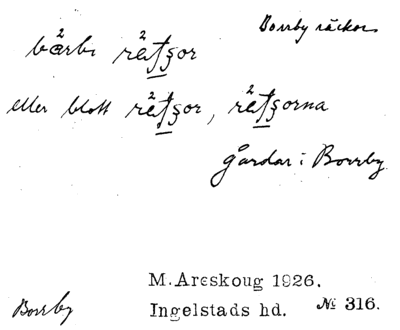 Borrby räckor
bärbi rätʂor
eller blott rätʂor, rätʂorna
gårdar i Borrby
M. Areskoug 1926.
Borrby Ingelstads hd. № 316.